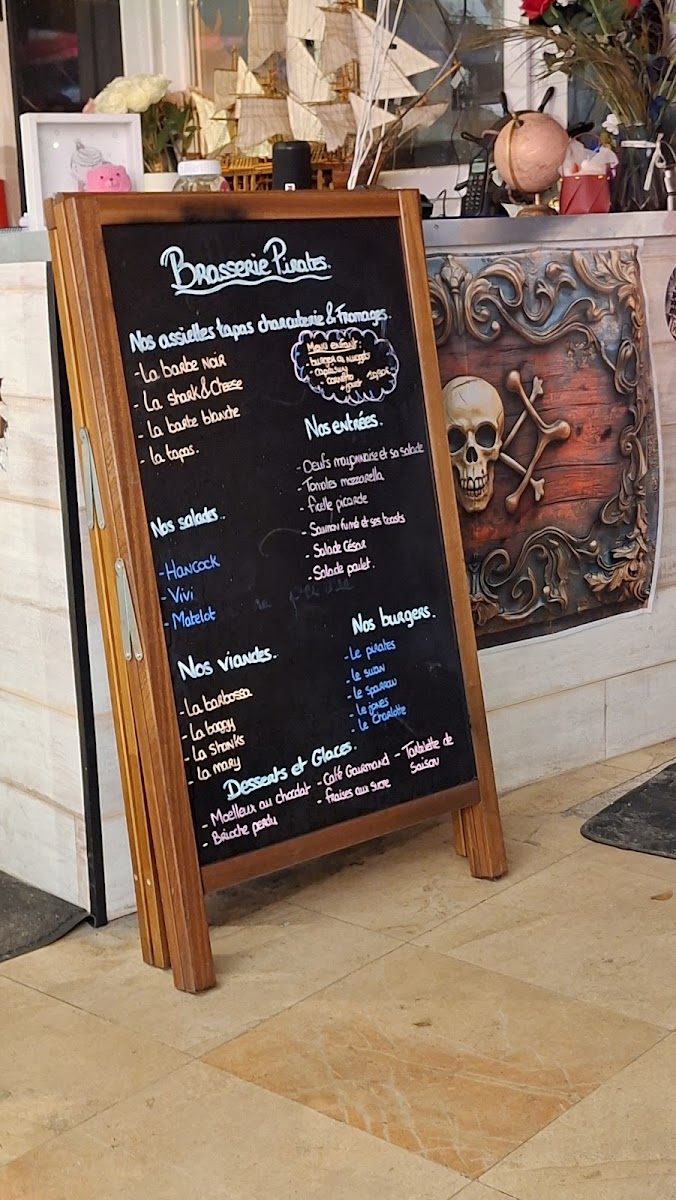 Brasserie Pirates.
Nos assiettes tapas charcuterie & Fromages.
- La barbe Noir
- La shark & Cheese
- La barbe blanche
- La tapas.
Menu enfant:
- burger ou nuggets
- caprisun
- cornetto
+ jouet
Nos entrées.
- Oeufs mayonnaise et sa salade
- Tomates mozzarella
- Ficelle picarde
- Saumon fumé et ses toasts
- Salade César
- Salade poulet.
Nos salades.
- Hancock
- Vivi
- Matelot
Nos viandes.
- La barbossa
- La baggy
- La shanks
- La mary
Nos burgers.
- Le pirates
- Le swan
- Le sparrow
- Le jones
- Le Charlotte
Desserts et Glaces.
- Moelleux au chocolat
- Brioche perdu
- Café Gourmand
- Fraises au sucre
- Tartelette de
Saison